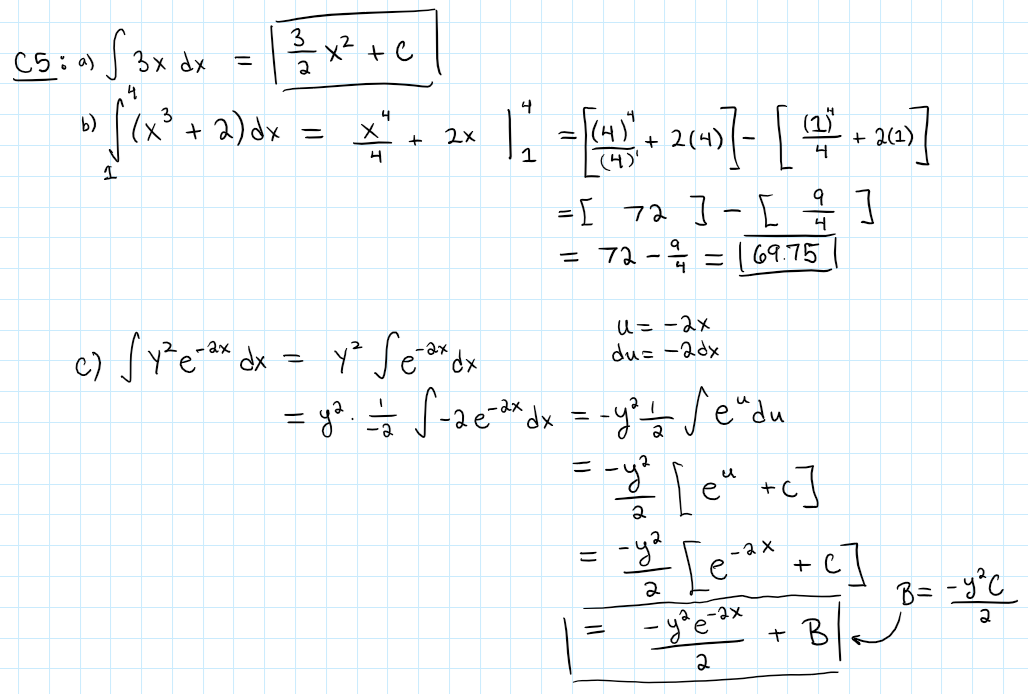 C5: a) ∫ 3x dx = 3/2 x² + C
b) ∫₁⁴ (x³ + 2) dx = x⁴/4 + 2x |₁⁴ = [(4)⁴/(4)¹ + 2(4)] - [(1)⁴/4 + 2(1)]
= [ 72 ] - [ 9/4 ]
= 72 - 9/4 = 69.75
u = -2x
du = -2dx
c) ∫ y² e^(-2x) dx = y² ∫ e^(-2x) dx
= y² · 1/-2 ∫ -2 e^(-2x) dx = -y² 1/2 ∫ e^u du
= -y²/2 [e^u + c]
= -y²/2 [e^(-2x) + c]
= -y² e^(-2x)/2 + B
B = -y²C/2